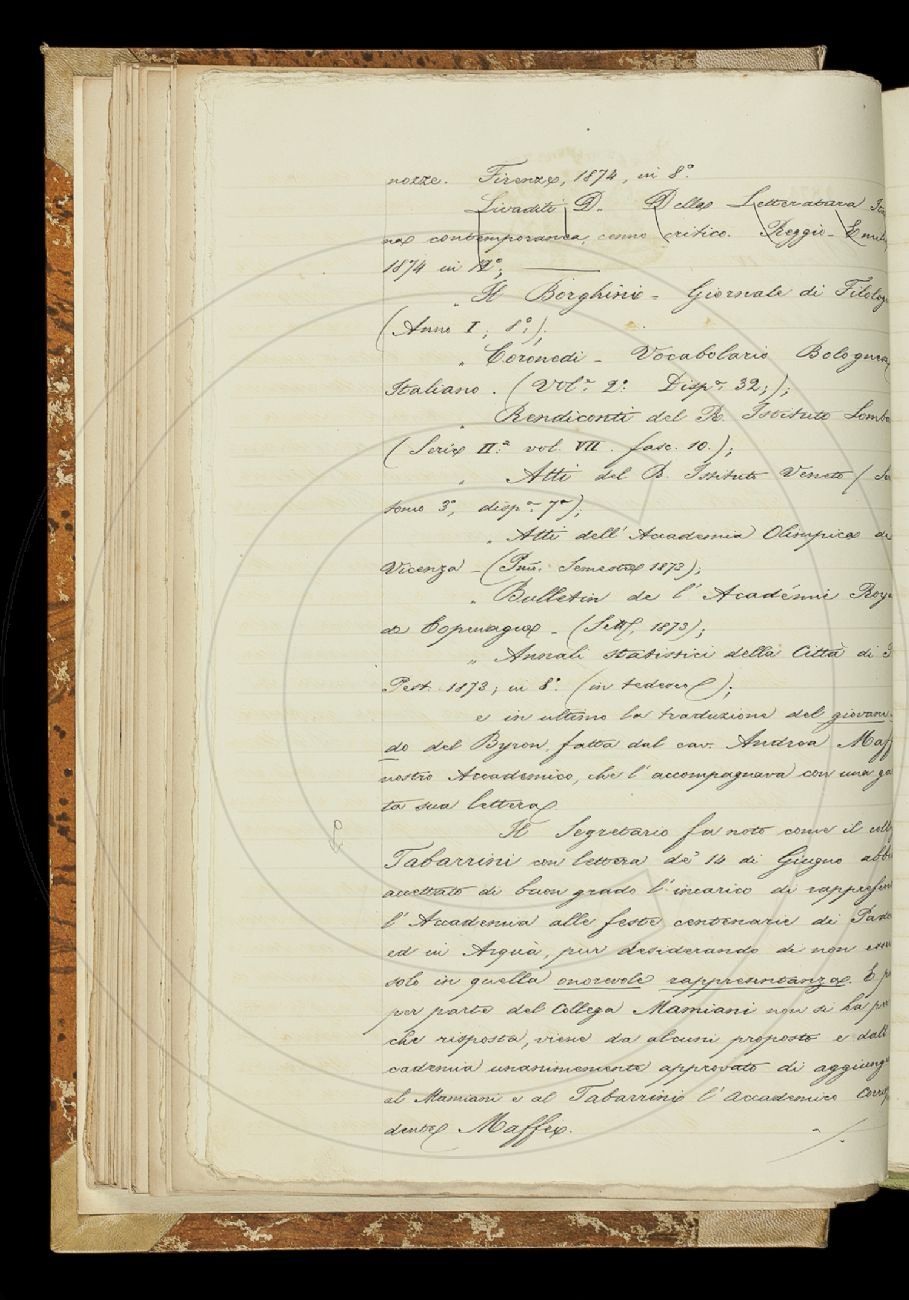 nozze. Firenze, 1874, in 8°.
Livaditi D. Della Letteratura Ita
na contemporanea, cenno critico. Reggio-Emilia,
1874 in 12°;
" Il Borghini - Giornale di Filolog
(Anno I, 8°;).
" Coronedi - Vocabolario Bologne
Italiano. (Vol. 2° Disp. 32;);
" Rendiconti del R. Istituto Lomba
(Serie II.a vol. VII. fasc. 10.);
" Atti del R. Istituto Veneto (Se
tomo 3°, disp. 7a);
" Atti dell'Accademia Olimpica di
Vicenza - (Semestre 1873);
" Bulletin de l'Académie Roy
de Copenague - (1873);
" Annali statistici della Città di
Pest. 1873; in 8°. (in tedesco);
e in ultimo la traduzione del giovan
do del Byron, fatta dal cav. Andrea Maff
nostro Accademico, che l'accompagnava con una ga
ta sua lettera.
Il Segretario fa noto come il coll
Tabarrini con lettera de' 14 di Giugno abbi
accettato di buon grado l'incarico di rappresen
l'Accademia alle feste centenarie di Pado
ed in Arquà, pur desiderando di non esser
solo in quella onorevole rappresentanza. E p
per parte del Collega Mamiani non si ha per
che risposta, viene da alcuni proposto e dall'
cademia unanimemente approvato di aggiunge
al Mamiani e al Tabarrini l'Accademico Corrisp
dente Maffei.